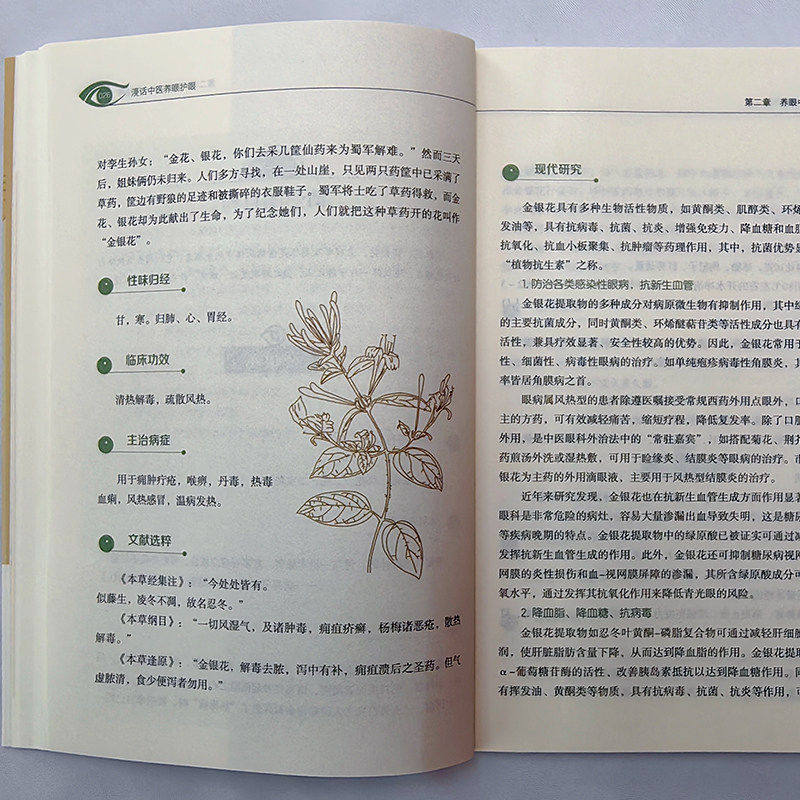 026
漫话中医养眼护眼
对孪生孙女：“金花、银花，你们去采几筐仙药来为蜀军解难。”然而三天
后，姐妹俩仍未归来。人们多方寻找，在一处山崖，只见两只药筐中已采满了
草药，筐边有野狼的足迹和被撕碎的衣服鞋子。蜀军将士吃了草药得救，而金
花、银花却为此献出了生命，为了纪念她们，人们就把这种草药开的花叫作
“金银花”。
性味归经
甘，寒。归肺、心、胃经。
临床功效
清热解毒，疏散风热。
主治病症
用于痈肿疔疮，喉痹，丹毒，热毒
血痢，风热感冒，温病发热。
文献选粹
《本草经集注》：“今处处皆有。
似藤生，凌冬不凋，故名忍冬。”
《本草纲目》：“一切风湿气，及诸肿毒，痈疽疥癣，杨梅诸恶疮，散热
解毒。”
《本草逢原》：“金银花，解毒去脓，泻中有补，痈疽溃后之圣药。但气
虚脓清，食少便泻者勿用。”
第二章 养眼
现代研究
金银花具有多种生物活性物质，如黄酮类、肌醇类、环烯
发油等，具有抗病毒、抗菌、抗炎、增强免疫力、降血糖和血脂
抗氧化、抗血小板聚集、抗肿瘤等药理作用，其中，抗菌优势显
“植物抗生素”之称。
1. 防治各类感染性眼病，抗新生血管
金银花提取物的多种成分对病原微生物有抑制作用，其中绿
的主要抗菌成分，同时黄酮类、环烯醚萜苷类等活性成分也具有
活性，兼具疗效显著、安全性较高的优势。因此，金银花常用于
性、细菌性、病毒性眼病的治疗。如单纯疱疹病毒性角膜炎，其
率皆居角膜病之首。
眼病属风热型的患者除遵医嘱接受常规西药外用点眼外，口
主的方药，可有效减轻痛苦，缩短疗程，降低复发率。除了口服
外用，是中医眼科外治法中的“常驻嘉宾”，如搭配菊花、荆芥
药煎汤外洗或湿热敷，可用于睑缘炎、结膜炎等眼病的治疗。市
银花为主药的外用滴眼液，主要用于风热型结膜炎的治疗。
近年来研究发现，金银花也在抗新生血管生成方面作用显著
眼科是非常危险的病灶，容易大量渗漏出血导致失明，这是糖尿
等疾病晚期的特点。金银花提取物中的绿原酸已被证实可通过减
发挥抗新生血管生成的作用。此外，金银花还可抑制糖尿病视网
网膜的炎性损伤和血-视网膜屏障的渗漏，其所含绿原酸成分可
氧水平，通过发挥其抗氧化作用来降低青光眼的风险。
2. 降血脂、降血糖、抗病毒
金银花提取物如忍冬叶黄酮-磷脂复合物可通过减轻肝细胞
润，使肝脏脂肪含量下降，从而达到降血脂的作用。金银花提取
α-葡萄糖苷酶的活性、改善胰岛素抵抗以达到降血糖作用。同
有挥发油、黄酮类等物质，具有抗病毒、抗菌、抗炎等作用，可